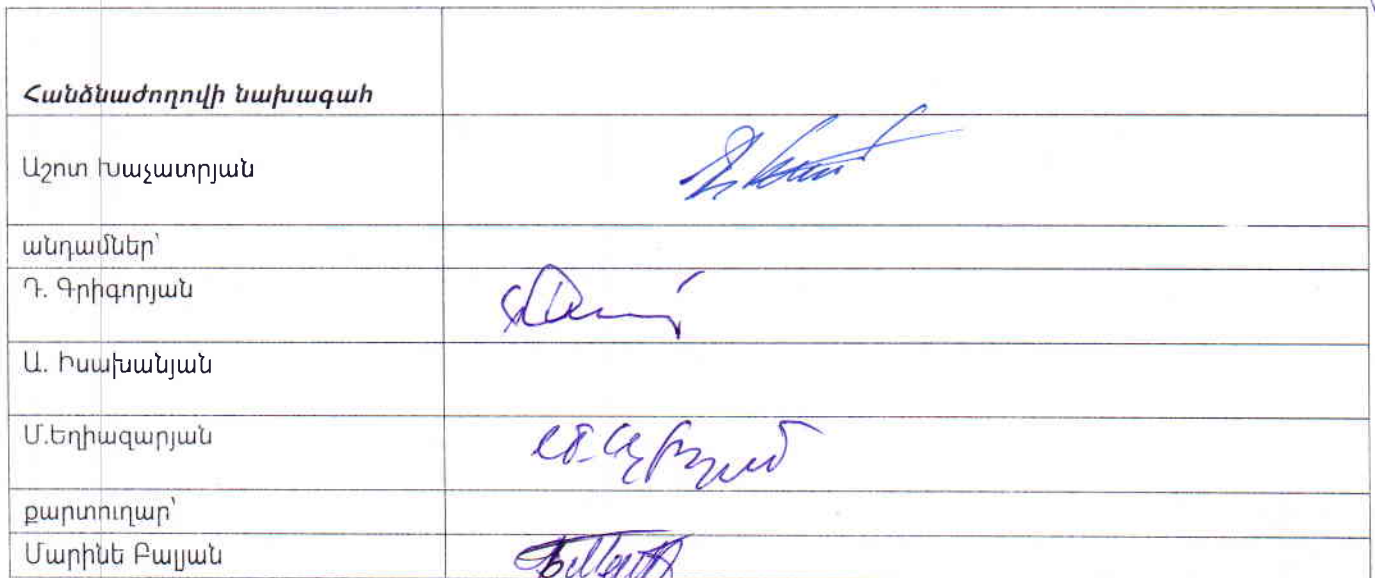 Հանձնաժողովի նախագահ
Աշոտ Խաչատրյան
անդամներ՝
Դ. Գրիգորյան
Ա. Իսախանյան
Մ.Եղիազարյան
քարտուղար՝
Մարինե Բալյան